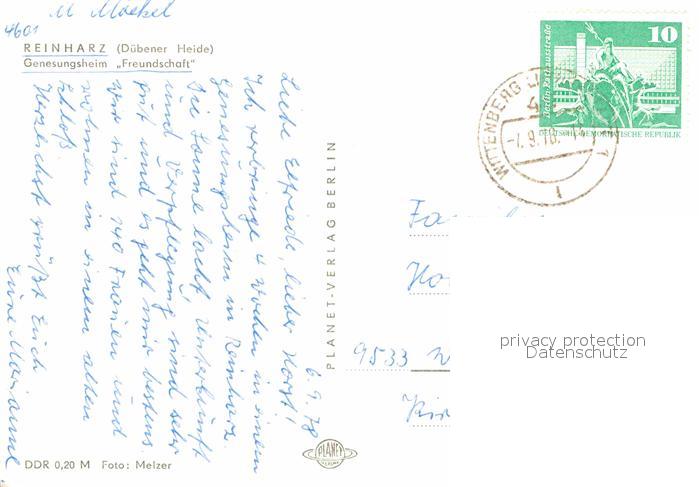 M Mockel
4601
REINHARZ (Dübener Heide)
Genesungsheim „Freundschaft"
6.9.78
Liebe Elfriede, lieber Horst!
Ich verbringe 4 Wochen in einem
Genesungsheim in Reinharz.
Die Sonne lacht, Unterkunft
und Verpflegung sind sehr
gut und es geht mir bestens.
Wir sind 140 Frauen und
wohnen in einem alten
Schloß.
Herzlichst grüßt Euch
Eure Marianne
DDR 0,20 M Foto: Melzer
PLANET-VERLAG BERLIN
PLANET
BERLIN
10
Berlin, Rathausstraße
DEUTSCHE DEMOKRATISCHE REPUBLIK
WITTENBERG
9533
privacy protection
Datenschutz